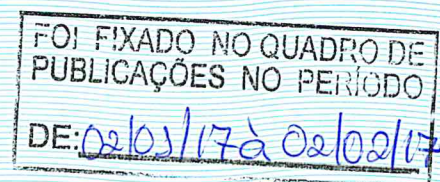 FOI FIXADO NO QUADRO DE
PUBLICAÇÕES NO PERÍODO
DE: 02/01/17 à 02/02/17